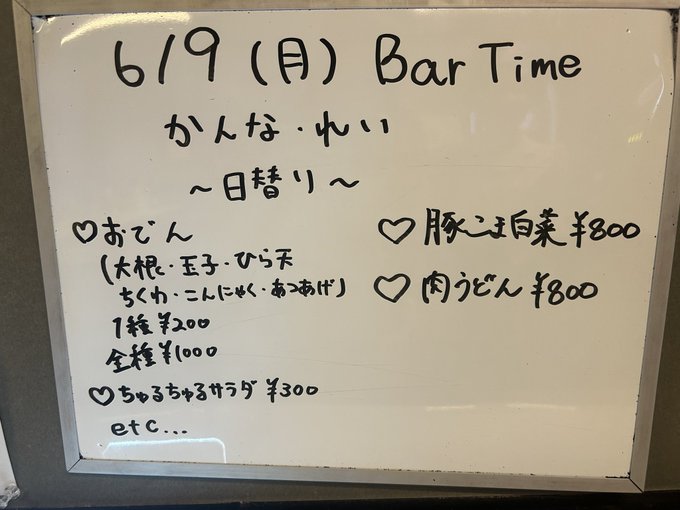 6/9(月) Bar Time
かんな・れい
～日替り～
♡おでん
(大根・玉子・ひら天
ちくわ・こんにゃく・あつあげ)
1種¥200
全種¥1000
♡ちゅるちゅるサラダ ¥300
etc...
♡豚こま白菜¥800
♡肉うどん¥800